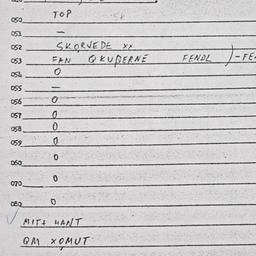 050 TOP
051 —
052 SKORVEDE xx
053 FAN QKUBERNE FENDL
054 0
055 —
056 0
057 0
058 0
059 0
060 0
070 0
080 0
MITA HANT
QM XOMUT